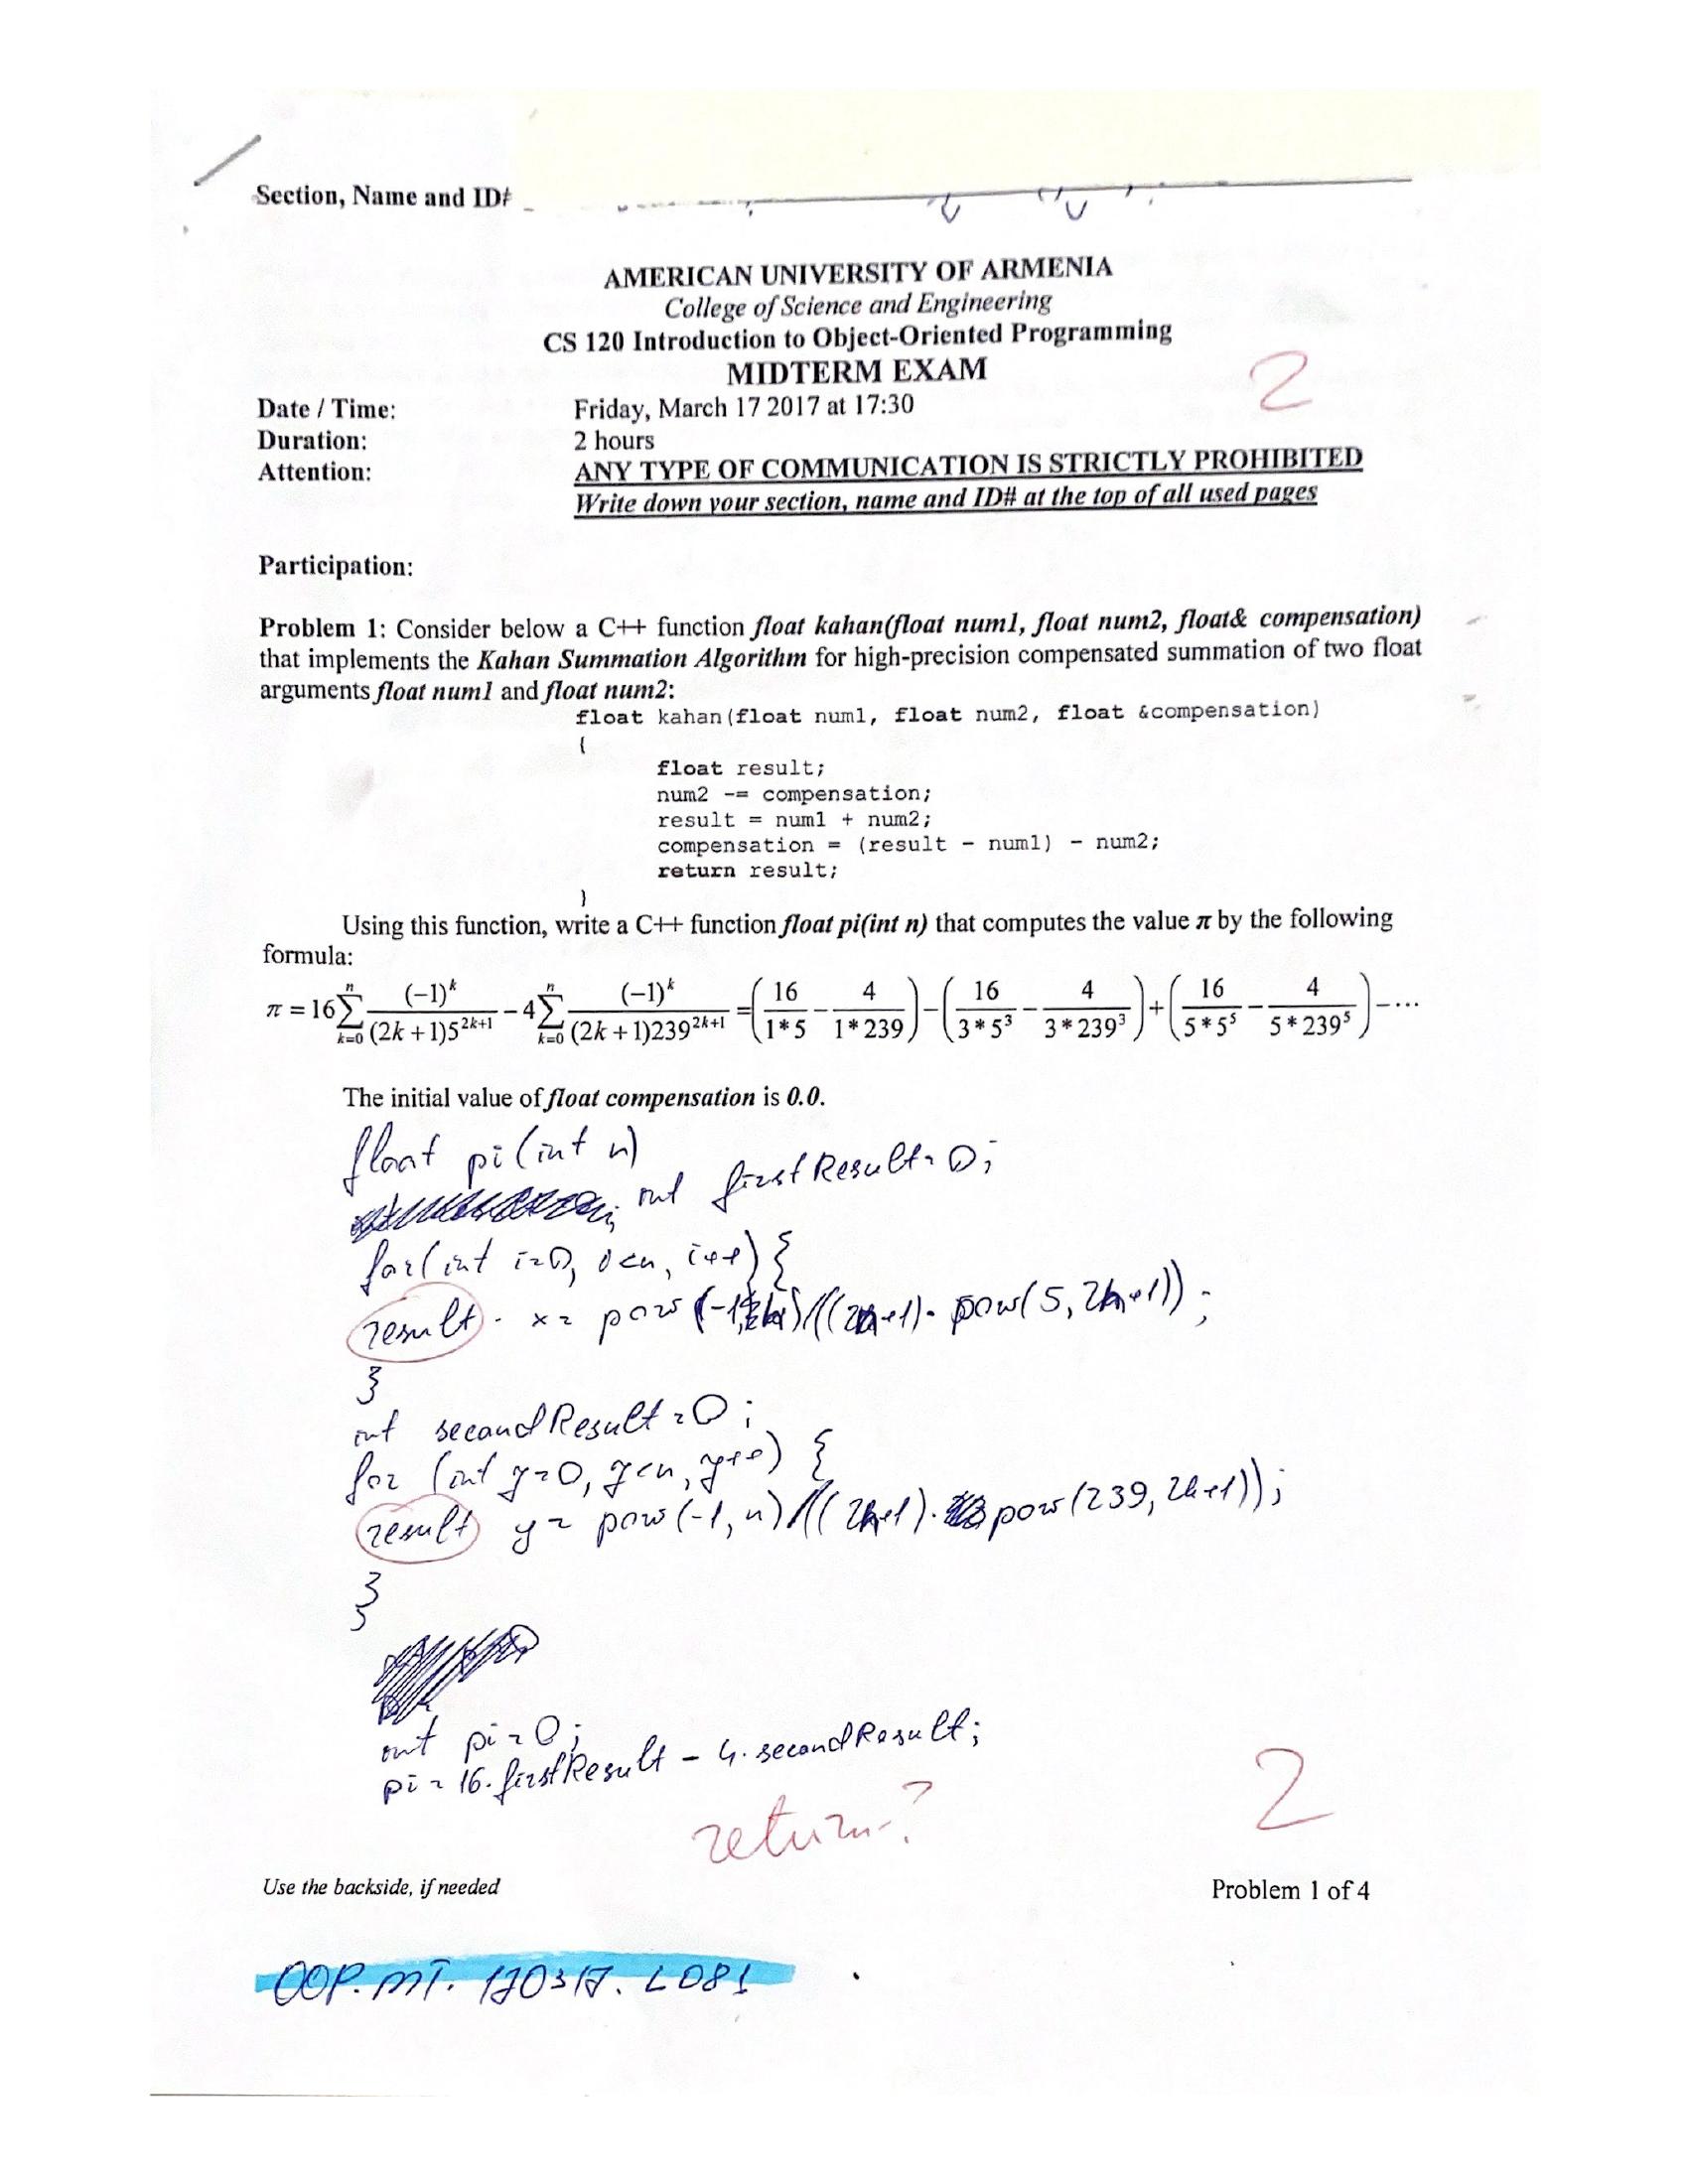 Section, Name and ID#
AMERICAN UNIVERSITY OF ARMENIA
College of Science and Engineering
CS 120 Introduction to Object-Oriented Programming
MIDTERM EXAM
2
Date / Time: Friday, March 17 2017 at 17:30
Duration: 2 hours
Attention: ANY TYPE OF COMMUNICATION IS STRICTLY PROHIBITED
Write down your section, name and ID# at the top of all used pages
Participation:
Problem 1: Consider below a C++ function float kahan(float num1, float num2, float& compensation)
that implements the Kahan Summation Algorithm for high-precision compensated summation of two float
arguments float num1 and float num2:
float kahan(float num1, float num2, float &compensation)
{
float result;
num2 -= compensation;
result = num1 + num2;
compensation = (result - num1) - num2;
return result;
}
Using this function, write a C++ function float pi(int n) that computes the value π by the following
formula:
π = 16 ∑_{k=0}^{n} (-1)^k / ((2k+1)5^{2k+1}) - 4 ∑_{k=0}^{n} (-1)^k / ((2k+1)239^{2k+1}) = (16/(1*5) - 4/(1*239)) - (16/(3*5^3) - 4/(3*239^3)) + (16/(5*5^5) - 4/(5*239^5)) - ⋯
The initial value of float compensation is 0.0.
float pi(int n)
int firstResult = 0;
for(int i=0, i<n, i++) {
result x = pow(-1, ) / ((2 +1) · pow(5, 2k+1));
}
int secondResult = 0;
for (int y=0, y<n, y++) {
result y = pow(-1, n) / ((2k+1) · pow(239, 2k+1));
}
int pi = 0;
pi = 16 · firstResult - 4 · secondResult;
return?
2
Use the backside, if needed
Problem 1 of 4
OOP. MT. 170317. L081